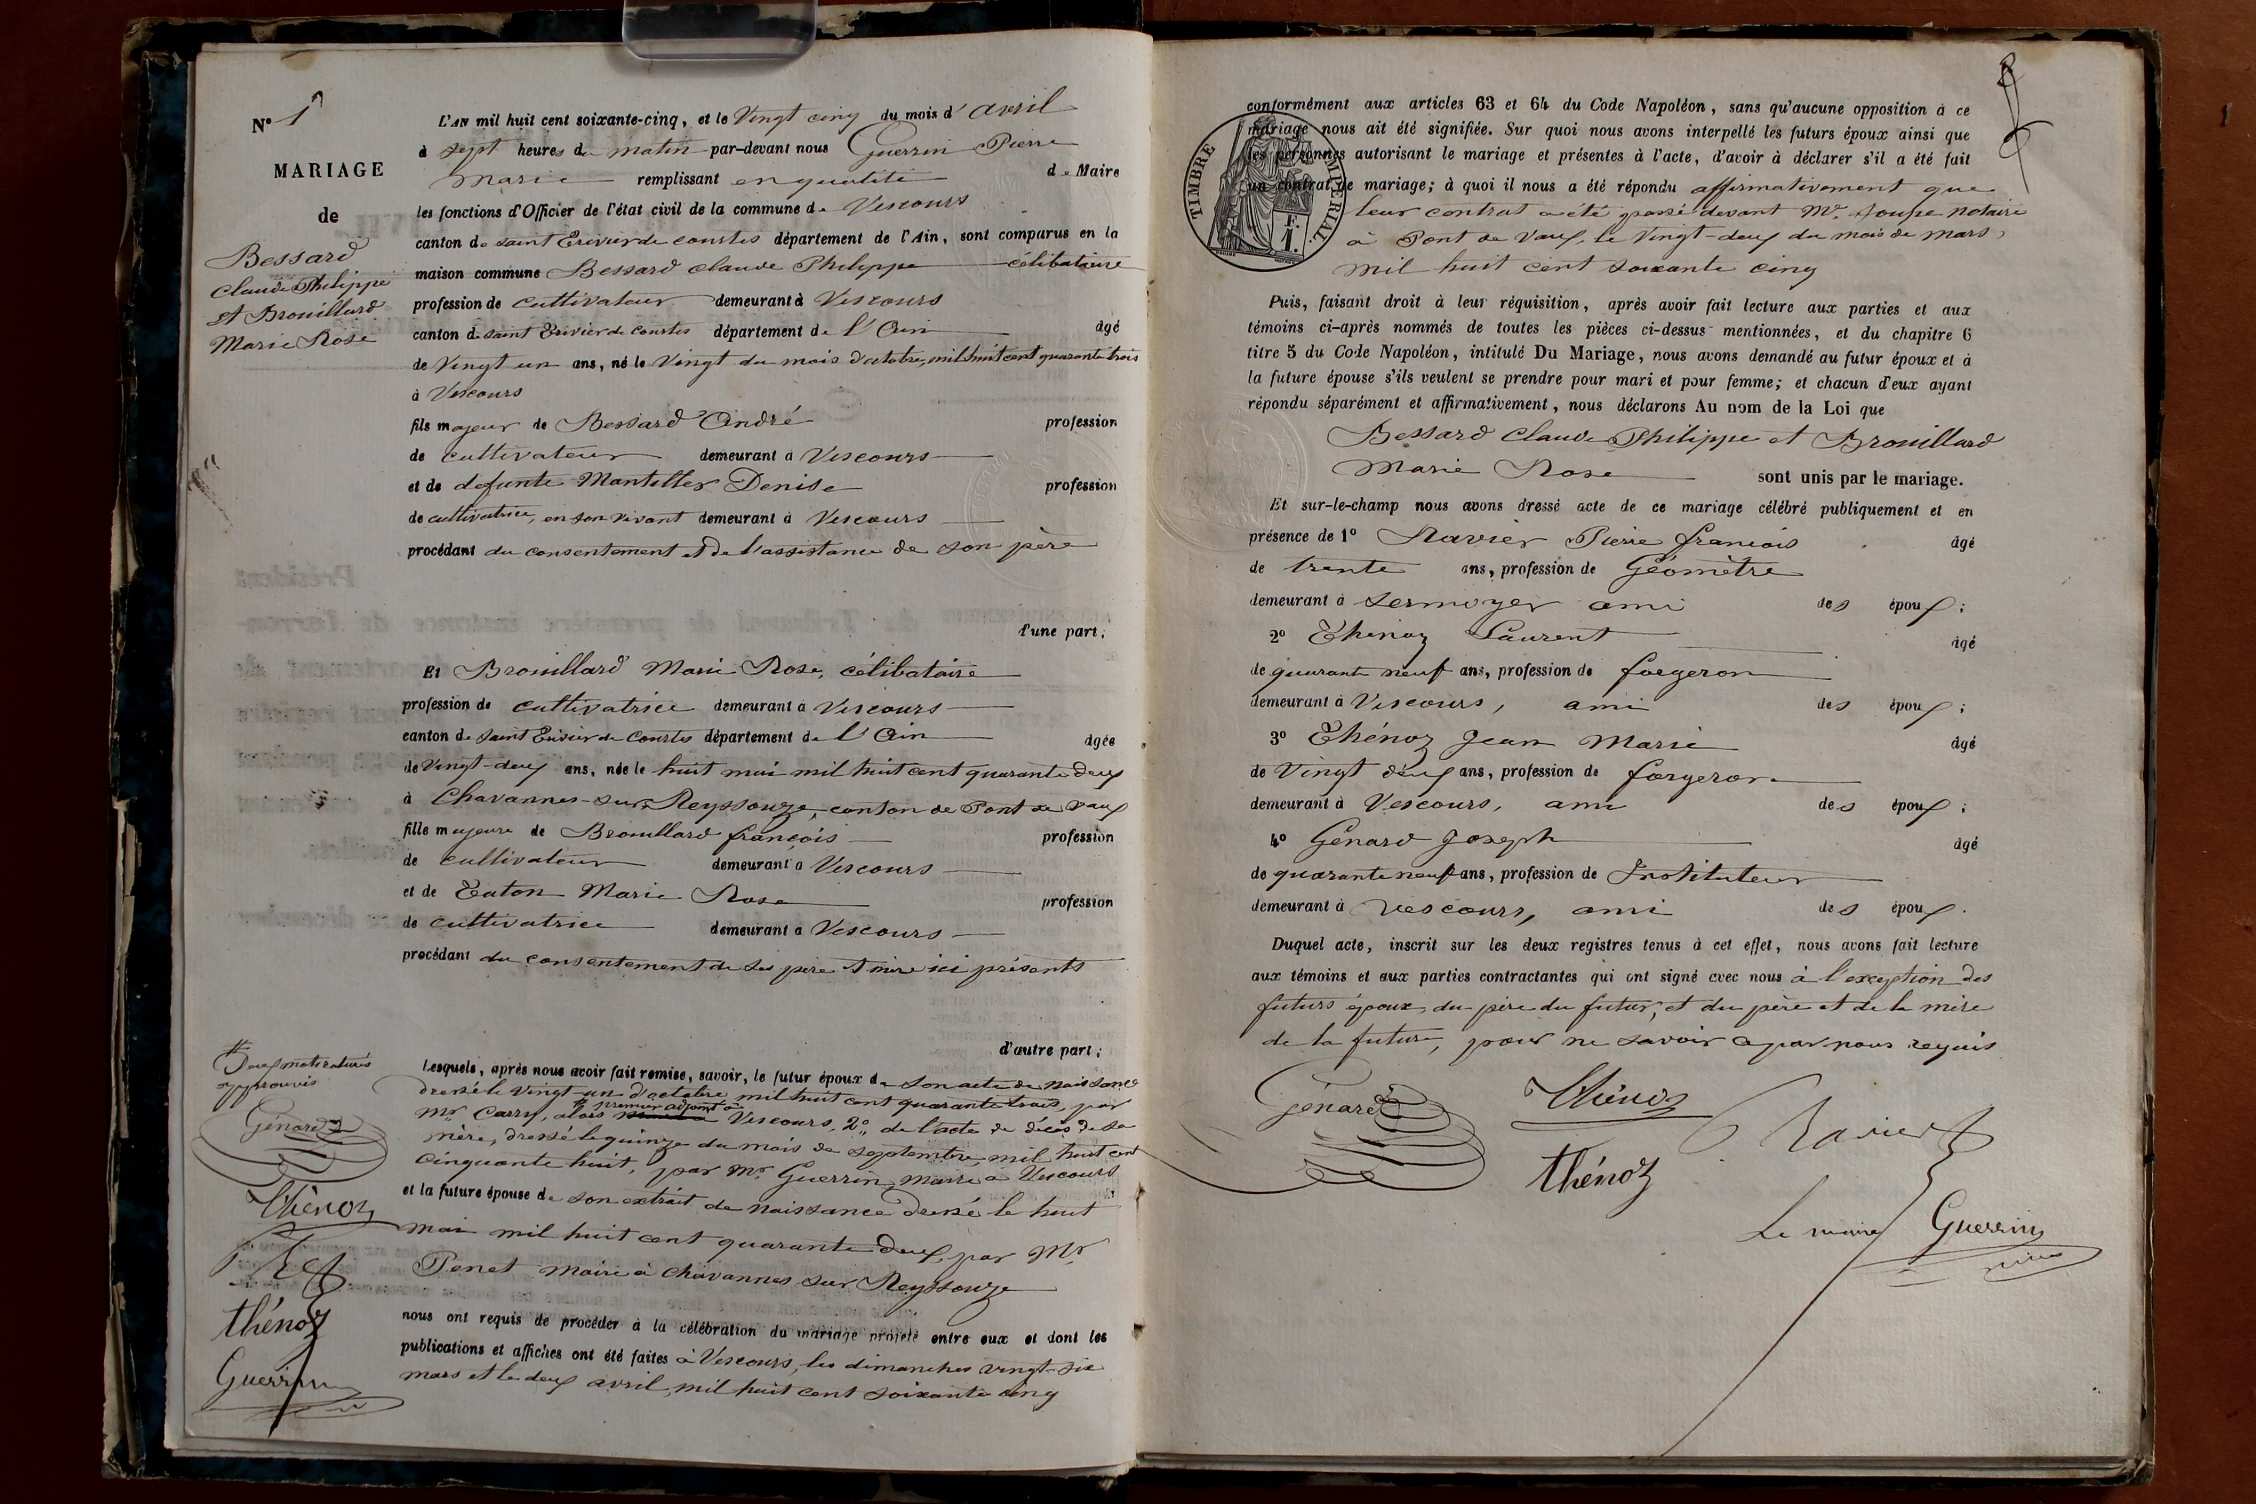 N° 1
MARIAGE
de
Bessard
Claude Philippe
et Brouillard
Marie Rose
L'AN mil huit cent soixante-cinq, et le Vingt cinq du mois d'avril
à sept heures du matin par-devant nous Guerrin Pierre
Marie remplissant en qualité de Maire
les fonctions d'Officier de l'état civil de la commune de Vescours
canton de saint Trivier de courtes département de l'Ain, sont comparus en la
maison commune Bessard Claude Philippe célibataire
profession de cultivateur demeurant à Vescours
canton de saint Trivier de Courtes département de l'Ain âgé
de Vingt un ans, né le Vingt du mois d'octobre, mil huit cent quarante trois
à Vescours
fils majeur de Bessard André profession
de cultivateur demeurant à Vescours
et de defunte Mantellier Denise profession
de cultivatrice, en son vivant demeurant à Vescours
procédant du consentement et de l'assistance de son père
d'une part;
Et Brouillard Marie Rose, célibataire
profession de cultivatrice demeurant à Vescours
canton de saint Trivier de Courtes département de l'Ain âgée
de Vingt-deux ans, née le huit mai mil huit cent quarante deux
à Chavannes-sur-Reyssouze, canton de Pont de Vaux
fille majeure de Brouillard françois profession
de cultivateur demeurant à Vescours
et de Taton Marie Rose profession
de cultivatrice demeurant à Vescours
procédant du consentement de ses père et mère ici présents
d'autre part;
Lesquels, après nous avoir fait remise, savoir, le futur époux de son acte de naissance
dressé le vingt-un d'octobre mil huit cent quarante trois, par
premier adjoint à
Mr Carry, alors Vescours, 2° de l'acte de décès de sa
mère, dressé le quinze du mois de septembre, mil huit cent
cinquante huit, par Mr Guerrin, maire à Vescours
et la future épouse de son extrait de naissance dressé le huit
mai mil huit cent quarante deux, par Mr
Penet maire à Chavannes sur Reyssouze
nous ont requis de procéder à la célébration du mariage projeté entre eux et dont les
publications et affiches ont été faites à Vescours, les dimanches vingt-six
mars et le deux avril, mil huit cent soixante cinq
Deux mots raturés
approuvés
Génard
Thénoz
thénoz
Guerrin
conformément aux articles 63 et 64 du Code Napoléon, sans qu'aucune opposition à ce
mariage nous ait été signifiée. Sur quoi nous avons interpellé les futurs époux ainsi que
les personnes autorisant le mariage et présentes à l'acte, d'avoir à déclarer s'il a été fait
un contrat de mariage; à quoi il nous a été répondu affirmativement que
leur contrat a été passé devant Mr. notaire
à Pont de Vaux, le Vingt-deux du mois de mars,
mil huit cent soixante cinq
TIMBRE IMPÉRIAL
F.
1.
Puis, faisant droit à leur réquisition, après avoir fait lecture aux parties et aux
témoins ci-après nommés de toutes les pièces ci-dessus mentionnées, et du chapitre 6
titre 5 du Code Napoléon, intitulé Du Mariage, nous avons demandé au futur époux et à
la future épouse s'ils veulent se prendre pour mari et pour femme; et chacun d'eux ayant
répondu séparément et affirmativement, nous déclarons Au nom de la Loi que
Bessard Claude Philippe et Brouillard
Marie Rose sont unis par le mariage.
Et sur-le-champ nous avons dressé acte de ce mariage célébré publiquement et en
présence de 1° Ravier Pierre françois âgé
de trente ans, profession de Géomètre
demeurant à Sermoyer ami des époux;
2° Thénoz Laurent âgé
de quarante neuf ans, profession de forgeron
demeurant à Vescours, ami des époux;
3° Thénoz Jean Marie âgé
de Vingt deux ans, profession de forgeron
demeurant à Vescours, ami des époux;
4° Génard Joseph âgé
de quarante neuf ans, profession de Instituteur
demeurant à Vescours, ami des époux.
Duquel acte, inscrit sur les deux registres tenus à cet effet, nous avons fait lecture
aux témoins et aux parties contractantes qui ont signé avec nous à l'exception des
futurs époux, du père du futur, et du père et de la mère
de la future, pour ne savoir a par nous requis
Génard
Thénoz
Ravier
thénoz
Le maire Guerrin